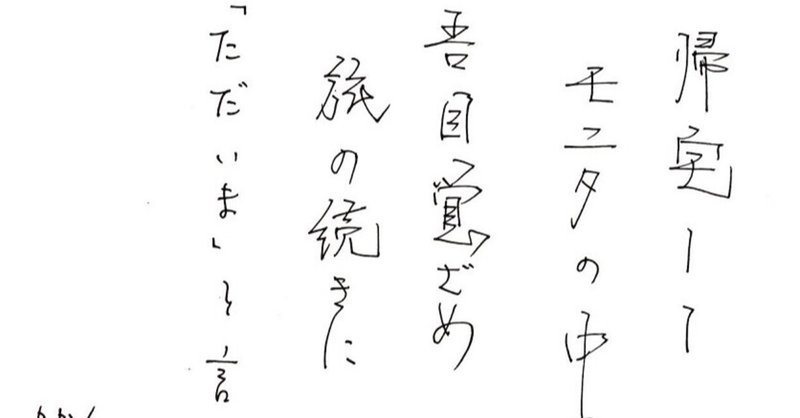 帰宅して
モニタの中
吾目覚ざめ
旅の続きに
「ただいま」と言